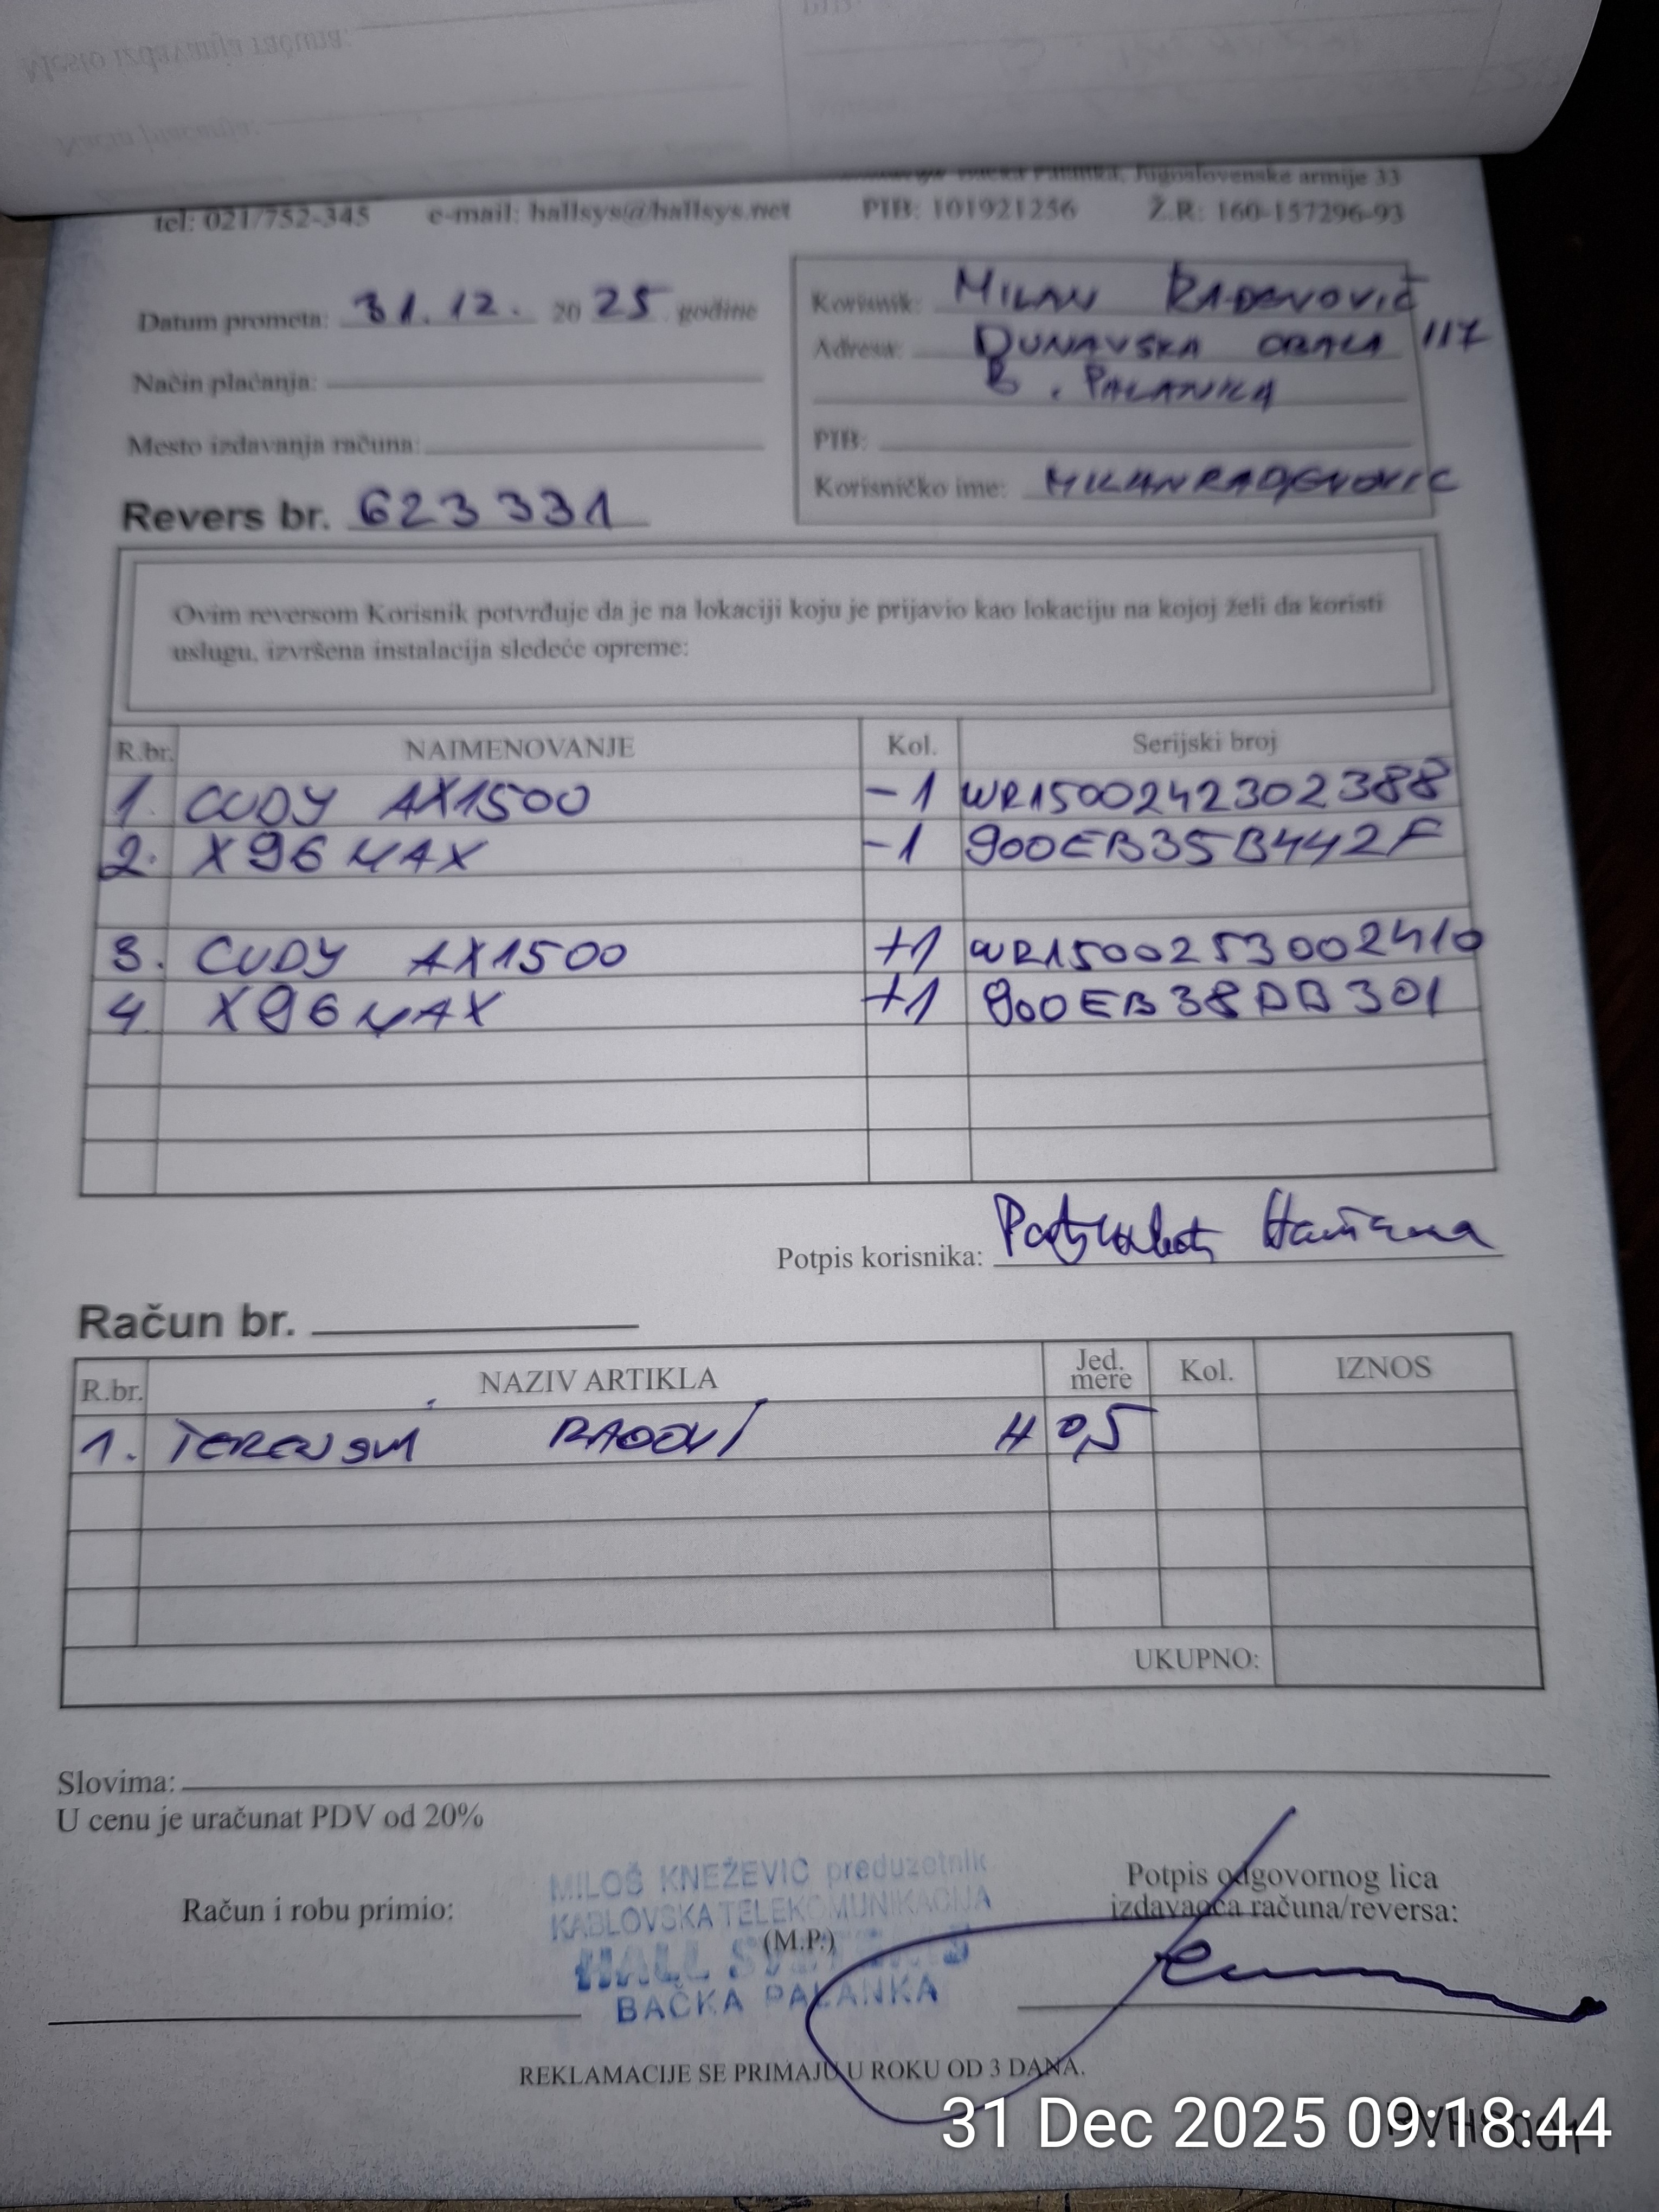 Mesto izdavanja računa:
Način plaćanja:
Bačka Palanka, Jugoslovenske armije 33
tel: 021/752-345 e-mail: hallsys@hallsys.net PIB: 101921256 Ž.R: 160-157296-93
Datum prometa: 31.12. 2025 godine
Način plaćanja:
Mesto izdavanja računa:
Revers br. 623331
Korisnik: MILAN RADENOVIĆ
Adresa: DUNAVSKA OBALA 117
B. PALANKA
PIB:
Korisničko ime: MILANRADJENOVIC
Ovim reversom Korisnik potvrđuje da je na lokaciji koju je prijavio kao lokaciju na kojoj želi da koristi
uslugu, izvršena instalacija sledeće opreme:
R.br. NAIMENOVANJE Kol. Serijski broj
1. CUDY AX1500 -1 WR1500242302388
2. X96 MAX -1 900EB35B442F
3. CUDY AX1500 +1 WR1500253002410
4. X96 MAX +1 900EB38DB301
Potpis korisnika:
Račun br.
R.br. NAZIV ARTIKLA Jed. mere Kol. IZNOS
1. TERENSKI RADOVI H 0,5
UKUPNO:
Slovima:
U cenu je uračunat PDV od 20%
Račun i robu primio:
MILOŠ KNEŽEVIĆ preduzetnik
KABLOVSKA TELEKOMUNIKACIJA
(M.P.)
HALL SYSTEMS
BAČKA PALANKA
Potpis odgovornog lica
izdavaoca računa/reversa:
REKLAMACIJE SE PRIMAJU U ROKU OD 3 DANA.
31 Dec 2025 09:18:44